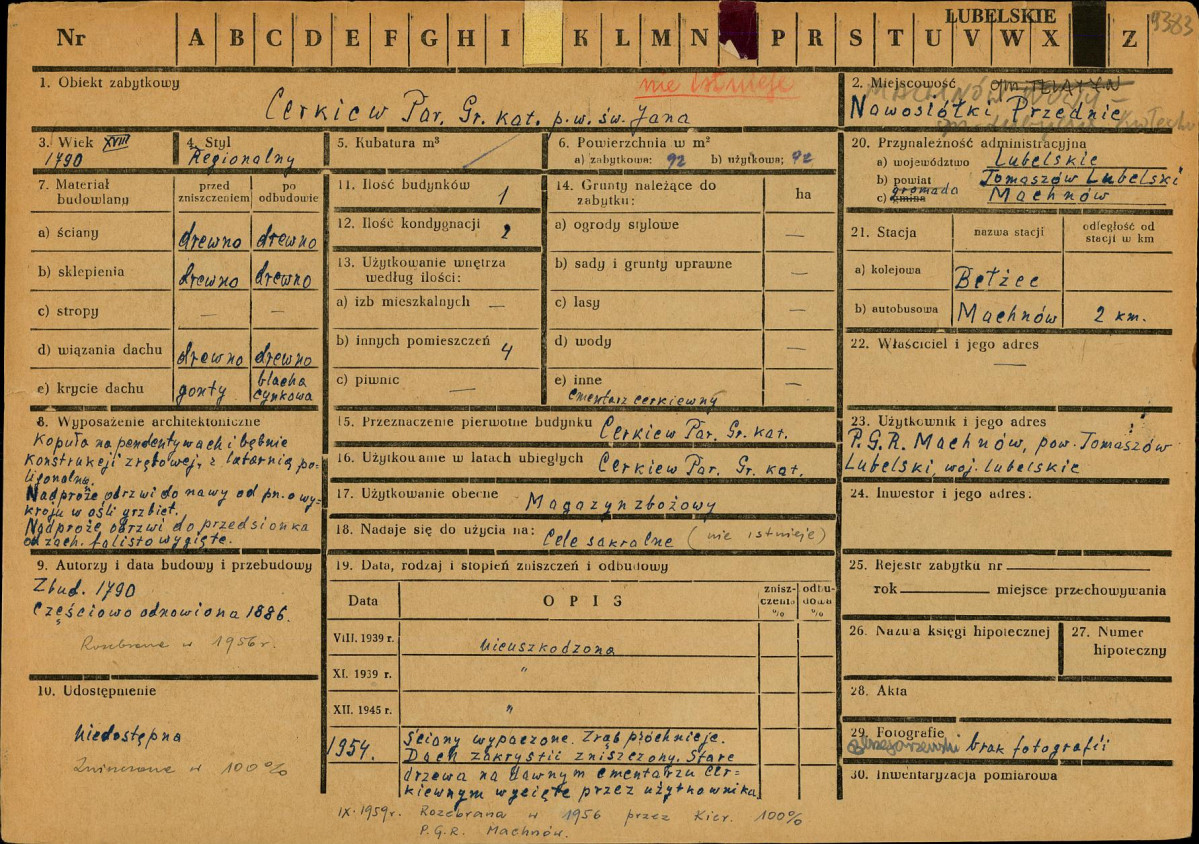 LUBELSKIE
9383
Nr A B C D E F G H I K L M N P R S T U V W X Z
1. Obiekt zabytkowy
nie istnieje
Cerkiew Par. Gr. kat. p.w. św. Jana
2. Miejscowość gm TELATYN
MACHNÓW
Nowosiółki Przednie
3. Wiek XVIII
1790
4. Styl
Regionalny
5. Kubatura m³
6. Powierzchnia w m²
a) zabytkowa: 92 b) użytkowa: 92
20. Przynależność administracyjna
a) województwo Lubelskie
b) powiat Tomaszów Lubelski
gromada
c) gmina Machnów
7. Materiał budowlany
przed zniszczeniem
po odbudowie
a) ściany drewno drewno
b) sklepienia drewno drewno
c) stropy — —
d) wiązania dachu drewno drewno
e) krycie dachu gonty blacha cynkowa
11. Ilość budynków 1
12. Ilość kondygnacji 2
13. Użytkowanie wnętrza
według ilości:
a) izb mieszkalnych —
b) innych pomieszczeń 4
c) piwnic —
14. Grunty należące do
zabytku: ha
a) ogrody stylowe —
b) sady i grunty uprawne —
c) lasy —
d) wody —
e) inne —
cmentarz cerkiewny
21. Stacja nazwa stacji odległość od stacji w km
a) kolejowa Bełżec
b) autobusowa Machnów 2 km.
22. Właściciel i jego adres
—
8. Wyposażenie architektoniczne
Kopuła na pendentywach i bębnie
konstrukcji zrębowej, z latarnią po-
ligonalną.
Nadproże odrzwi do nawy od pn. o wy-
kroju w ośli grzbiet.
Nadproże odrzwi do przedsionka
od zach. falisto wygięte.
15. Przeznaczenie pierwotne budynku Cerkiew Par. Gr. kat.
16. Użytkowanie w latach ubiegłych Cerkiew Par. Gr. kat.
17. Użytkowanie obecne Magazyn zbożowy
18. Nadaje się do użycia na: Cele sakralne (nie istnieje)
23. Użytkownik i jego adres
P.G.R. Machnów, pow. Tomaszów
Lubelski, woj. lubelskie
24. Inwestor i jego adres:
9. Autorzy i data budowy i przebudowy
Zbud. 1790
Częściowo odnowiona 1886.
Rozebrana w 1956 r.
10. Udostępnienie
niedostępna
Zniszczona w 100%
19. Data, rodzaj i stopień zniszczeń i odbudowy
Data OPIS znisz-czenia % odbu-dowa %
VIII. 1939 r. nieuszkodzona
XI. 1939 r. "
XII. 1945 r. "
1954. Ściany wypaczone. Zrąb próchnieje.
Dach zakrystii zniszczony. Stare
drzewa na dawnym cmentarzu cer-
kiewnym wycięte przez użytkownika
IX. 1959r. Rozebrana w 1956 przez Kier. 100%
P.G.R. Machnów.
25. Rejestr zabytku nr
rok miejsce przechowywania
26. Nazwa księgi hipotecznej
27. Numer
hipoteczny
28. Akta
29. Fotografie
brak fotografii
30. Inwentaryzacja pomiarowa